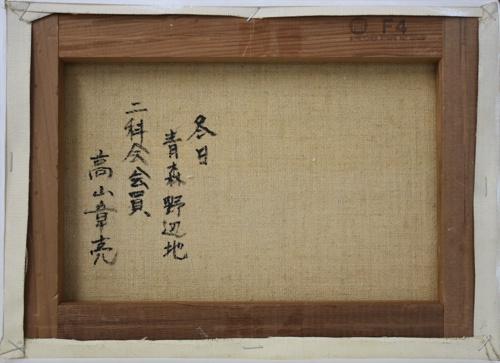 冬日
青森野辺地
二科会会員
高山章亮
F4